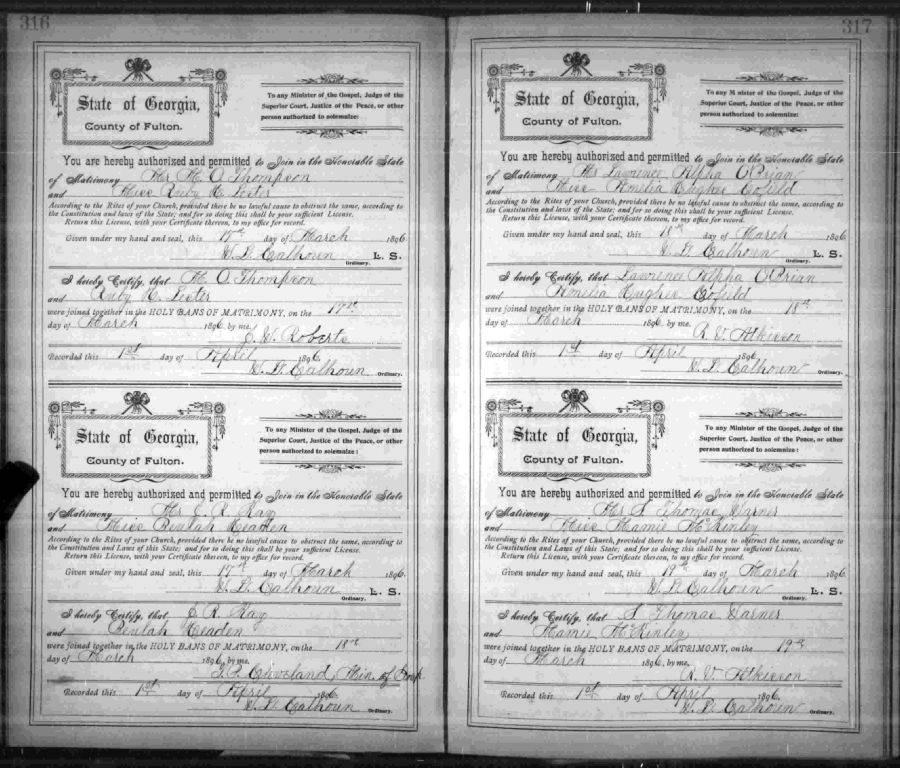 316
State of Georgia,
County of Fulton.
To any Minister of the Gospel, Judge of the
Superior Court, Justice of the Peace, or other
person authorized to solemnize:
You are hereby authorized and permitted to Join in the Honorable State
of Matrimony Mr H. O. Thompson
and Miss Ruby H. Lester
According to the Rites of your Church, provided there be no lawful cause to obstruct the same, according to
the Constitution and laws of the State; and for so doing this shall be your sufficient License.
Return this License, with your Certificate thereon, to my office for record.
Given under my hand and seal, this 17th day of March 1896
W. L. Calhoun L. S.
Ordinary.
I hereby Certify, that H. O. Thompson
and Ruby H. Lester
were joined together in the HOLY BANS OF MATRIMONY, on the 17th
day of March 1896, by me.
J. W. Roberts
Recorded this 1st day of April 1896
W. L. Calhoun Ordinary.
State of Georgia,
County of Fulton.
To any Minister of the Gospel, Judge of the
Superior Court, Justice of the Peace, or other
person authorized to solemnize:
You are hereby authorized and permitted to Join in the Honorable State
of Matrimony Mr E. R. Ray
and Miss Beulah Headen
According to the Rites of your Church, provided there be no lawful cause to obstruct the same, according to
the Constitution and Laws of this State; and for so doing this shall be your sufficient License.
Return this License, with your Certificate thereon, to my office for record.
Given under my hand and seal, this 17th day of March 1896
W. L. Calhoun L. S.
Ordinary.
I hereby Certify, that E. R. Ray
and Beulah Headen
were joined together in the HOLY BANS OF MATRIMONY, on the 18th
day of March 1896, by me.
Cleveland, Min. of Gosp
Recorded this 1st day of April 1896
W. L. Calhoun Ordinary.
317
State of Georgia,
County of Fulton.
To any Minister of the Gospel, Judge of the
Superior Court, Justice of the Peace, or other
person authorized to solemnize:
You are hereby authorized and permitted to Join in the Honorable State
of Matrimony Mr Lawrence Alpha O'Brian
and Miss Amelia Hughes Cofield
According to the Rites of your Church, provided there be no lawful cause to obstruct the same, according to
the Constitution and laws of the State; and for so doing this shall be your sufficient License.
Return this License, with your Certificate thereon, to my office for record.
Given under my hand and seal, this 18th day of March 1896
W. L. Calhoun L. S.
Ordinary.
I hereby Certify, that Lawrence Alpha O'Brian
and Amelia Hughes Cofield
were joined together in the HOLY BANS OF MATRIMONY, on the 18th
day of March 1896, by me.
R. V. Atkisson
Recorded this 1st day of April 1896
W. L. Calhoun Ordinary.
State of Georgia,
County of Fulton.
To any Minister of the Gospel, Judge of the
Superior Court, Justice of the Peace, or other
person authorized to solemnize:
You are hereby authorized and permitted to Join in the Honorable State
of Matrimony Mr S. Thomas Darner
and Miss Mamie McKinley
According to the Rites of your Church, provided there be no lawful cause to obstruct the same, according to
the Constitution and Laws of this State; and for so doing this shall be your sufficient License.
Return this License, with your Certificate thereon, to my office for record.
Given under my hand and seal, this 19th day of March 1896
W. L. Calhoun L. S.
Ordinary.
I hereby Certify, that S. Thomas Darner
and Mamie McKinley
were joined together in the HOLY BANS OF MATRIMONY, on the 19th
day of March 1896, by me.
R. V. Atkisson
Recorded this 1st day of April 1896
W. L. Calhoun Ordinary.